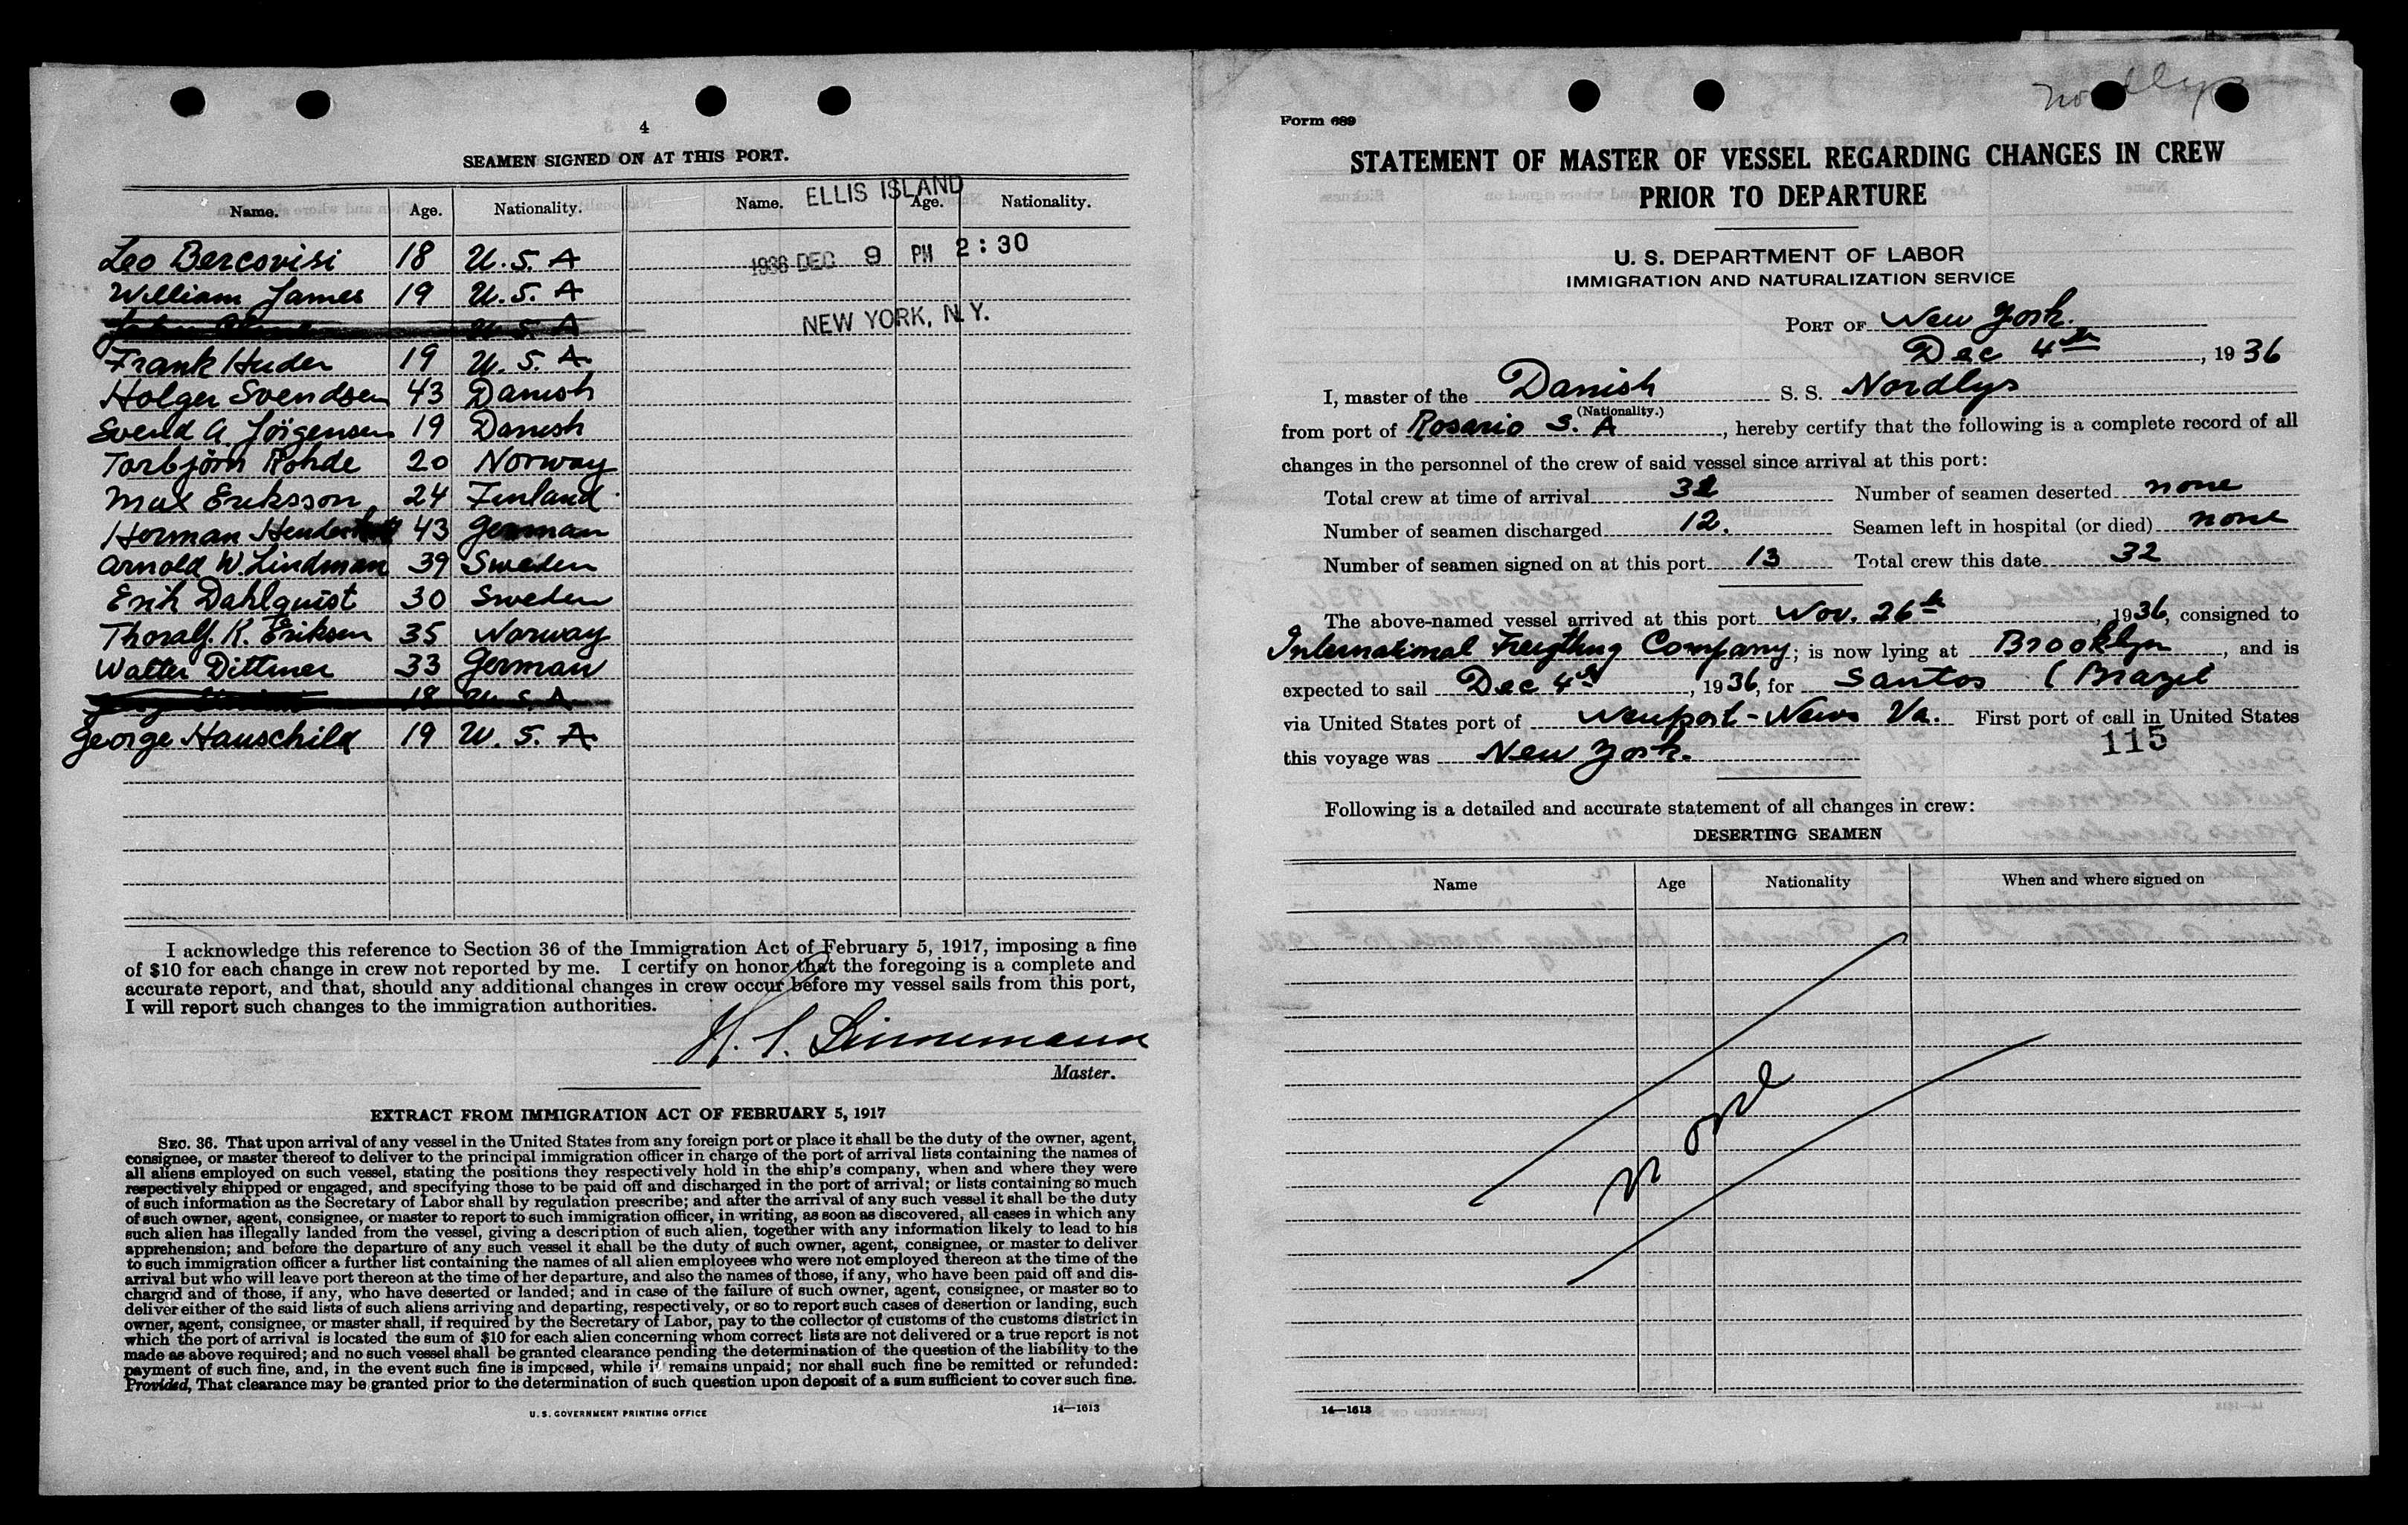 4
SEAMEN SIGNED ON AT THIS PORT.
Name. Age. Nationality. Name. Age. Nationality.
ELLIS ISLAND
1936 DEC 9 PM 2:30
NEW YORK, N.Y.
Leo Bercovisi 18 U.S.A
William James 19 U.S.A
U.S.A
Frank Huder 19 U.S.A.
Holger Svendsen 43 Danish
Svend A. Jörgensen 19 Danish
Torbjörn Rohde 20 Norway
Max Eriksson 24 Finland
Herman 43 German
Arnold W. Lindman 39 Sweden
Erik Dahlquist 30 Sweden
Thoralf. K. Eriksen 35 Norway
Walter Dittmer 33 German
18 U.S.A
George Hauschild 19 U.S.A.
I acknowledge this reference to Section 36 of the Immigration Act of February 5, 1917, imposing a fine
of $10 for each change in crew not reported by me. I certify on honor that the foregoing is a complete and
accurate report, and that, should any additional changes in crew occur before my vessel sails from this port,
I will report such changes to the immigration authorities.
Master.
EXTRACT FROM IMMIGRATION ACT OF FEBRUARY 5, 1917
SEC. 36. That upon arrival of any vessel in the United States from any foreign port or place it shall be the duty of the owner, agent,
consignee, or master thereof to deliver to the principal immigration officer in charge of the port of arrival lists containing the names of
all aliens employed on such vessel, stating the positions they respectively hold in the ship's company, when and where they were
respectively shipped or engaged, and specifying those to be paid off and discharged in the port of arrival; or lists containing so much
of such information as the Secretary of Labor shall by regulation prescribe; and after the arrival of any such vessel it shall be the duty
of such owner, agent, consignee, or master to report to such immigration officer, in writing, as soon as discovered, all cases in which any
such alien has illegally landed from the vessel, giving a description of such alien, together with any information likely to lead to his
apprehension; and before the departure of any such vessel it shall be the duty of such owner, agent, consignee, or master to deliver
to such immigration officer a further list containing the names of all alien employees who were not employed thereon at the time of the
arrival but who will leave port thereon at the time of her departure, and also the names of those, if any, who have been paid off and dis-
charged and of those, if any, who have deserted or landed; and in case of the failure of such owner, agent, consignee, or master so to
deliver either of the said lists of such aliens arriving and departing, respectively, or so to report such cases of desertion or landing, such
owner, agent, consignee, or master shall, if required by the Secretary of Labor, pay to the collector of customs of the customs district in
which the port of arrival is located the sum of $10 for each alien concerning whom correct lists are not delivered or a true report is not
made as above required; and no such vessel shall be granted clearance pending the determination of the question of the liability to the
payment of such fine, and, in the event such fine is imposed, while it remains unpaid; nor shall such fine be remitted or refunded:
Provided, That clearance may be granted prior to the determination of such question upon deposit of a sum sufficient to cover such fine.
U.S. GOVERNMENT PRINTING OFFICE 14—1613
Nordlys
Form 689
STATEMENT OF MASTER OF VESSEL REGARDING CHANGES IN CREW
PRIOR TO DEPARTURE
U. S. DEPARTMENT OF LABOR
IMMIGRATION AND NATURALIZATION SERVICE
PORT OF New York.
Dec 4th, 1936
I, master of the Danish S. S. Nordlys
(Nationality.)
from port of Rosario S. A, hereby certify that the following is a complete record of all
changes in the personnel of the crew of said vessel since arrival at this port:
Total crew at time of arrival Number of seamen deserted none
Number of seamen discharged 12. Seamen left in hospital (or died) none
Number of seamen signed on at this port 13 Total crew this date 32
The above-named vessel arrived at this port Nov. 26th, 1936, consigned to
International Freigthing Company; is now lying at Brooklyn, and is
expected to sail Dec 4th, 1936, for Santos ( Brazil
via United States port of Newport-News Va. First port of call in United States
this voyage was New York.
115
Following is a detailed and accurate statement of all changes in crew:
DESERTING SEAMEN
Name Age Nationality When and where signed on
None
14—1613